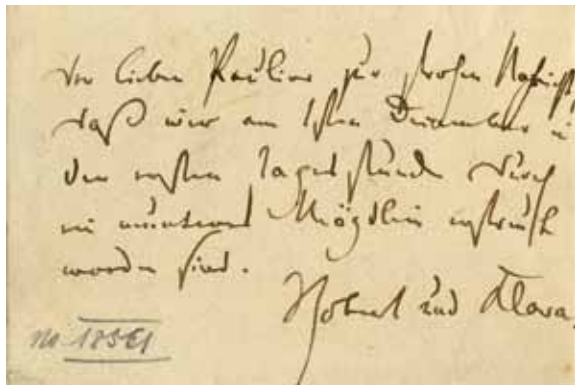 Der lieben Pauline zur frohen Nachricht,
daß wir am 1sten December in
den ersten Tagesstunden durch
ein munteres Mägdlein erfreut
worden sind.
Robert und Klara.